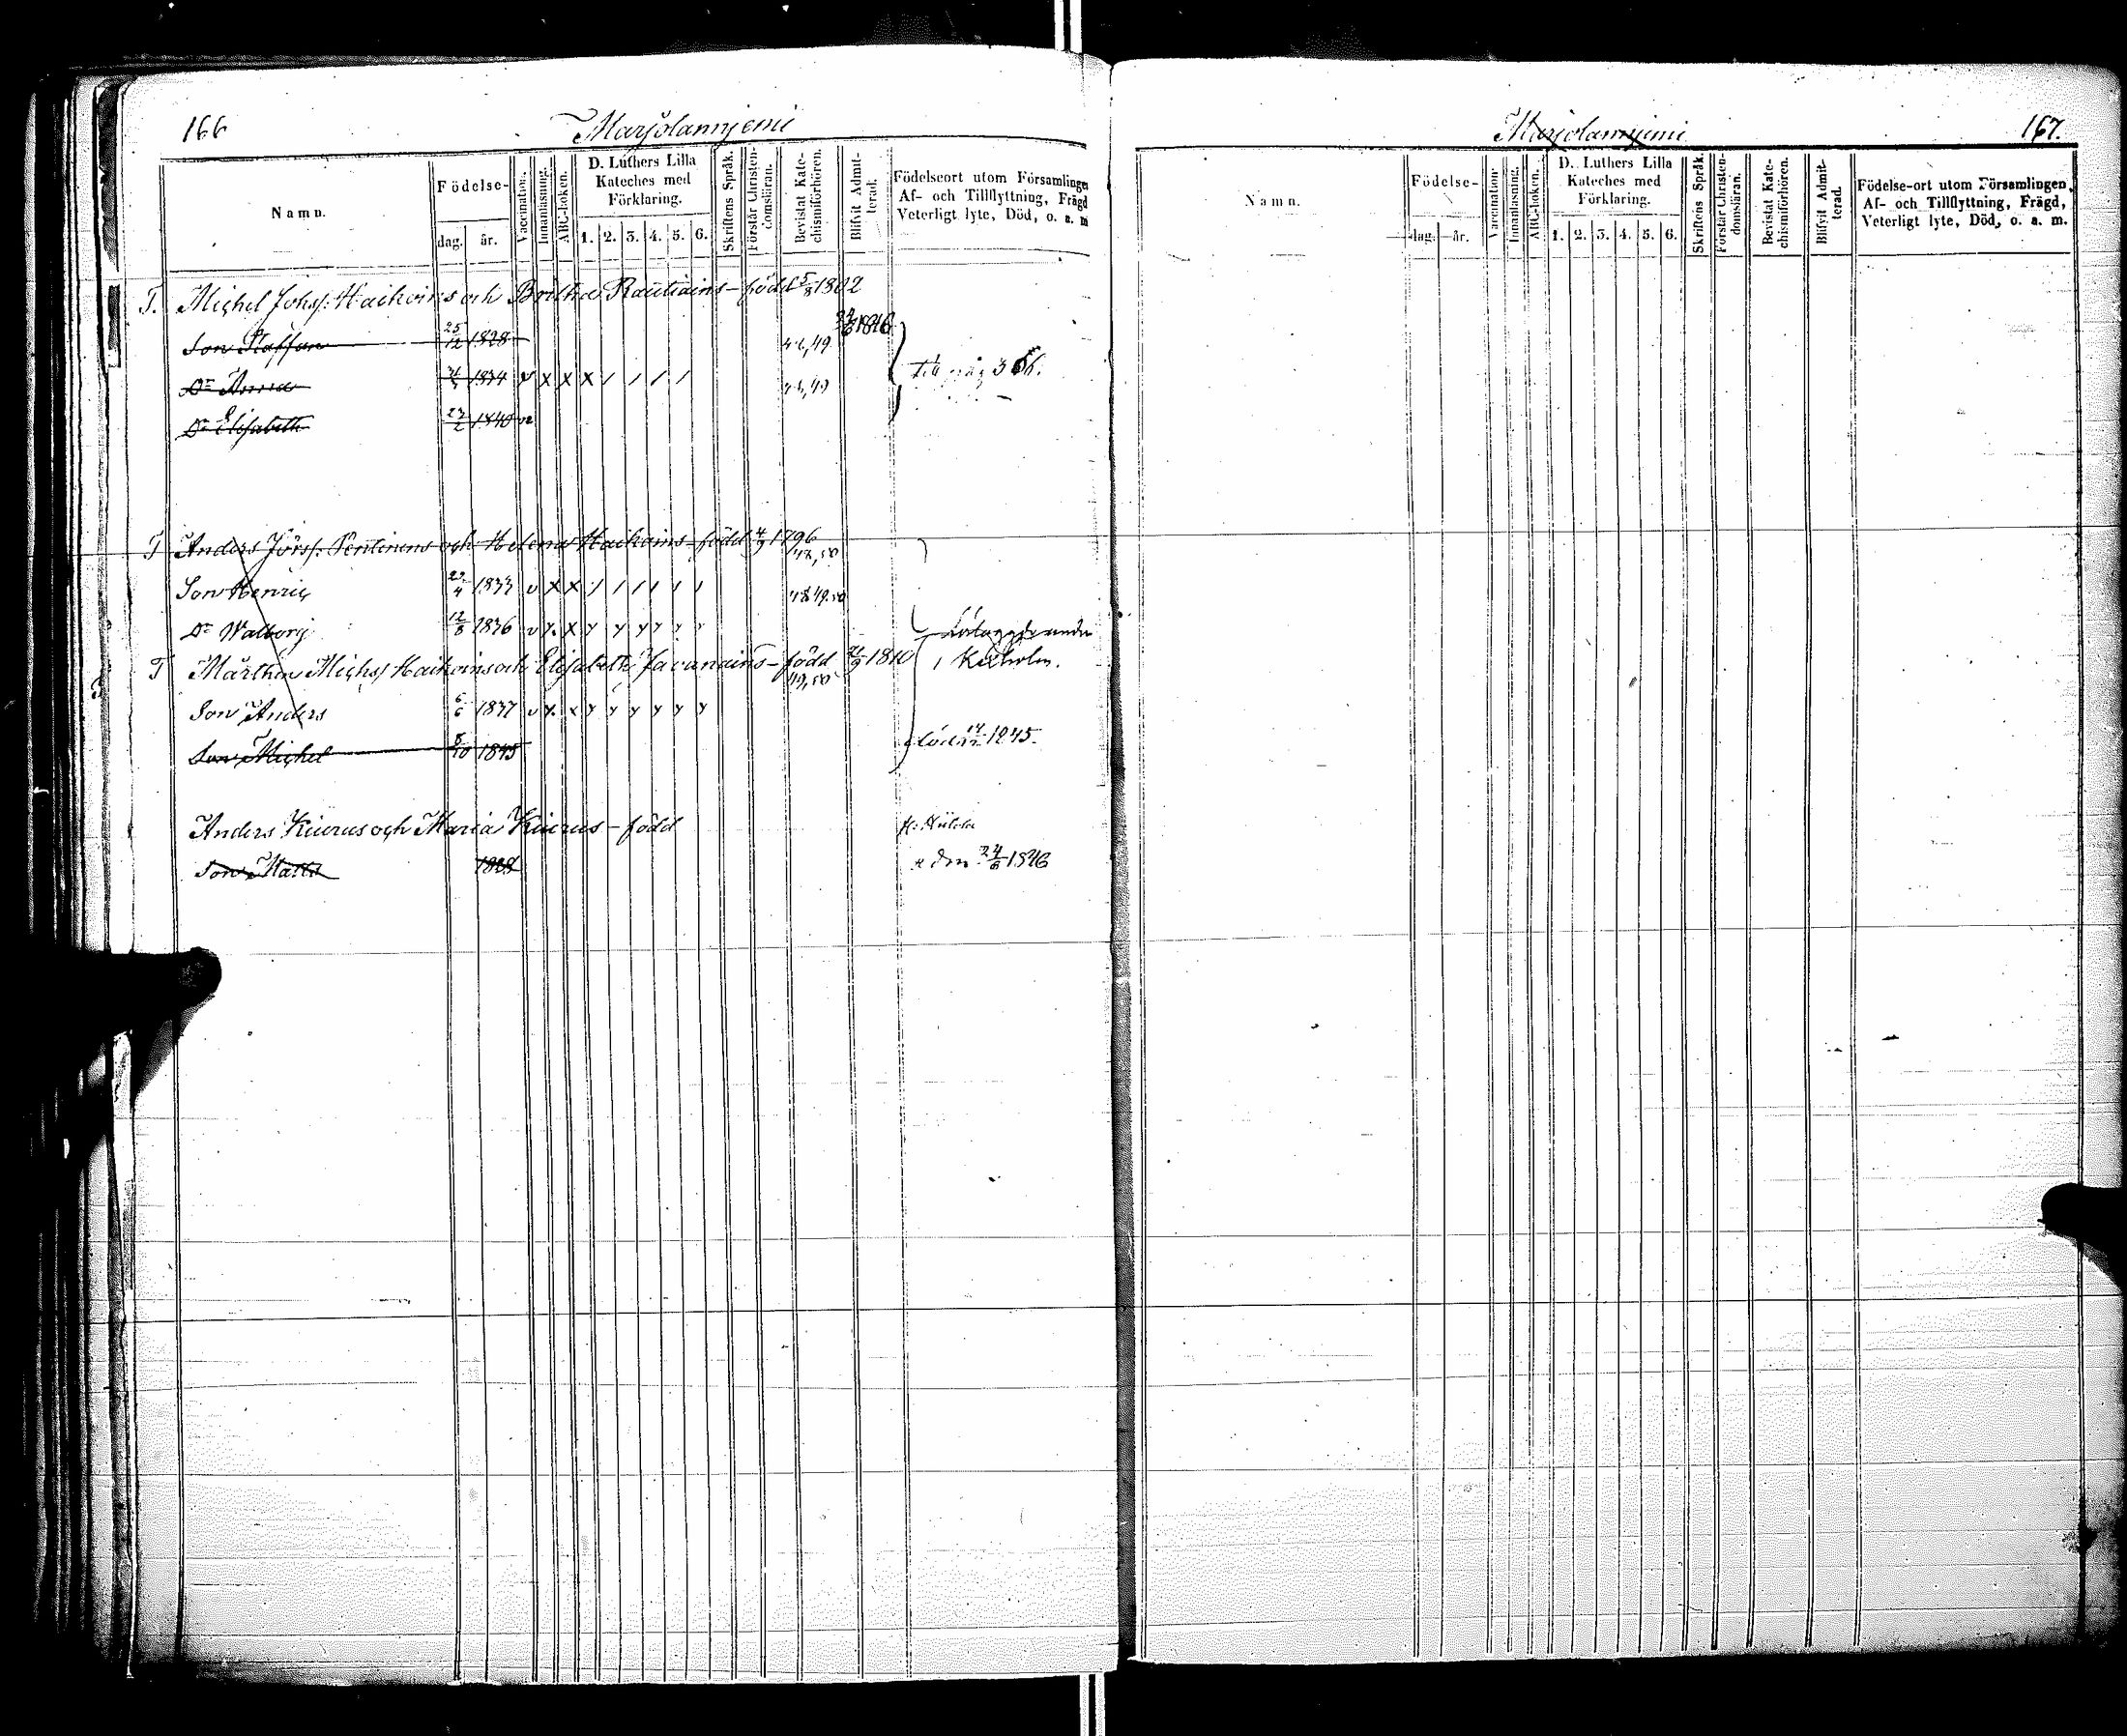 166 Marjolannjemi
Namn. Födelse- dag. år. Vaccination. Innanläsning. ABC-boken. D. Luthers Lilla Kateches med Förklaring. 1. 2. 3. 4. 5. 6. Skriftens Språk. Förstår Christendomsläran. Bevistat Katechismiförhören. Blifvit Admitterad. Födelseort utom Församlingen Af- och Tillflyttning, Frägd Veterligt lyte, Död, o. a. m
T. Michel Johsf: Haikoins och Britha Rautiains - född 5/8 1802
Son Staffan 25/12 1828 46,49 24/6 1846
Dr Anna 1834 v x x x / / / / 46,49 till pag 366.
Dr Elisabeth 27/2 1840 va
T Anders Jörsf: Pentinens och Helena Haikoins - född 4/9 1796
48,50
Son Henric 23/4 1833 v x x / / / / / / 48.49.50
Dr Walborg 12/8 1836 v x. x y y y y y
T Mårthen Michsf Haikoins och Elisabeth Javanains - född 1810 i Kexholm.
49,50
Son Anders 6/6 1837 v x. x y y y y y y
Son Michel 8/10 1845 död 14/12 1845.
Anders Kiurus och Maria Kiurus - född
Son Matts 1828 den 24/6 1846
Marjolannjemi 167.
Namn. Födelse- dag. år. Vaccination. Innanläsning. ABC-boken. D. Luthers Lilla Kateches med Förklaring. 1. 2. 3. 4. 5. 6. Skriftens Språk. Förstår Christendomsläran. Bevistat Katechismiförhören. Blifvit Admitterad. Födelse-ort utom Församlingen, Af- och Tillflyttning, Frägd, Veterligt lyte, Död, o. a. m.